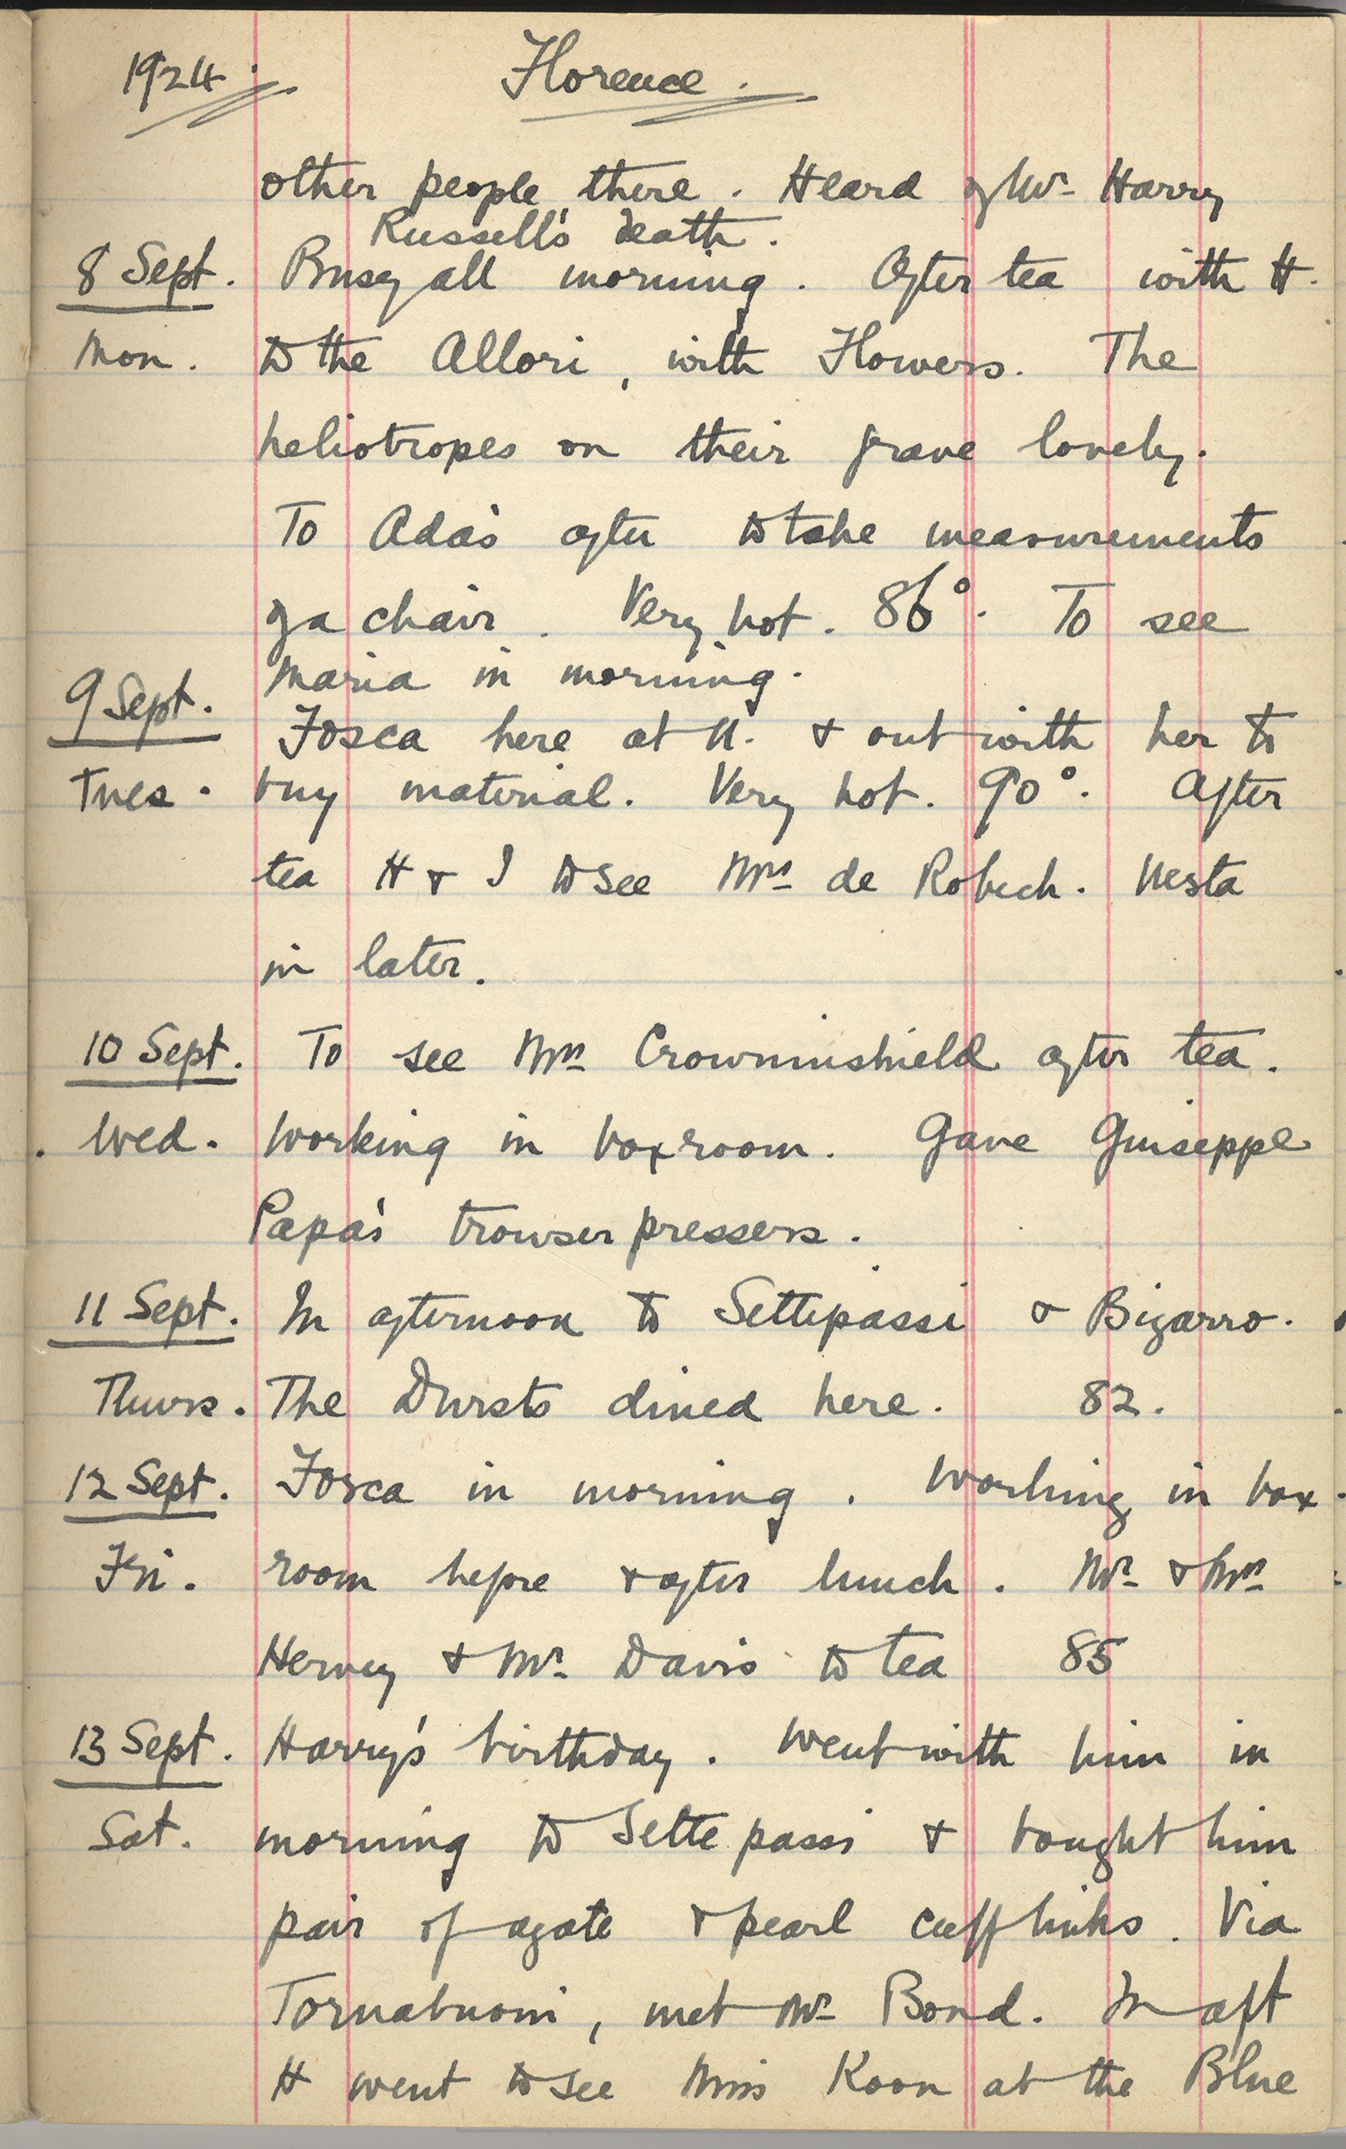 1924. Florence.
other people there. Heard of Mr. Harry
Russell's death.
8 Sept. Busy all morning. After tea with H.
Mon. to the Allori, with Flowers. The
heliotropes on their grave lovely.
To Ada's after to take measurements
of a chair. Very hot. 86°. To see
Maria in morning.
9 Sept. Fosca here at 11. & out with her to
Tues. buy material. Very hot. 90°. After
tea H & I to see Mrs de Robeck. Nesta
in later.
10 Sept. To see Mrs Crowninshield after tea.
Wed. Working in boxroom. Gave Giuseppe
Papa's trouser pressers.
11 Sept. In afternoon to Settepassi & Bizarro.
Thurs. The Dursts dined here. 82.
12 Sept. Fosca in morning. Working in box-
Fri. room before & after lunch. Mr. & Mrs
Hervey & Mr. Davis to tea 85
13 Sept. Harry's birthday. Went with him in
Sat. morning to Sette passi & bought him
pair of agate & pearl cuff links. Via
Tornabuoni, met Mr Bond. In aft
H went to see Miss Koon at the Blue